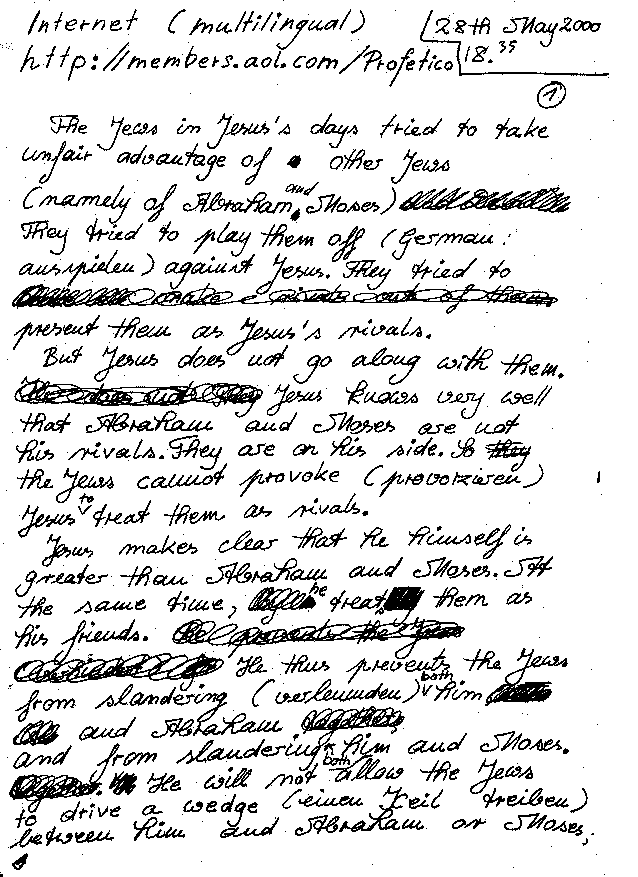 Internet (multilingual) 28th May 2000
http://members.aol.com/Profetico 18.35
1
The Jews in Jesus's days tried to take
unfair advantage of other Jews
(namely of Abraham and Moses)
They tried to play them off (German:
ausspielen) against Jesus. They tried to
make rivals out of them
present them as Jesus's rivals.
But Jesus does not go along with them.
Jesus knows very well
that Abraham and Moses are not
his rivals. They are on his side. So they
the Jews cannot provoke (provozieren)
Jesus to treat them as rivals.
Jesus makes clear that he himself is
greater than Abraham and Moses. At
the same time, he treats them as
his friends. He prevents the Jews
He thus prevents the Jews
from slandering (verleumden) both him
and Abraham together
and from slandering both him and Moses.
together. He will not allow the Jews
to drive a wedge (einen Keil treiben)
between him and Abraham or Moses,